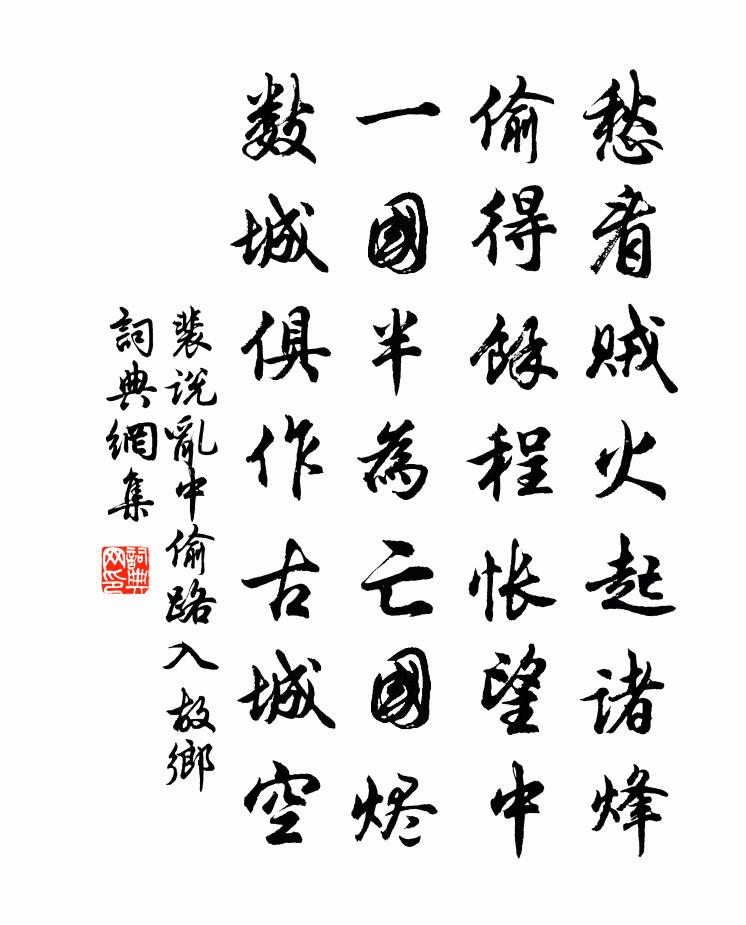 愁看賊火起諸烽
偷得餘程悵望中
一國半為亡國烬
数城俱作古城空
裴说亂中偷路入故鄉
詞典網集
詞典网印